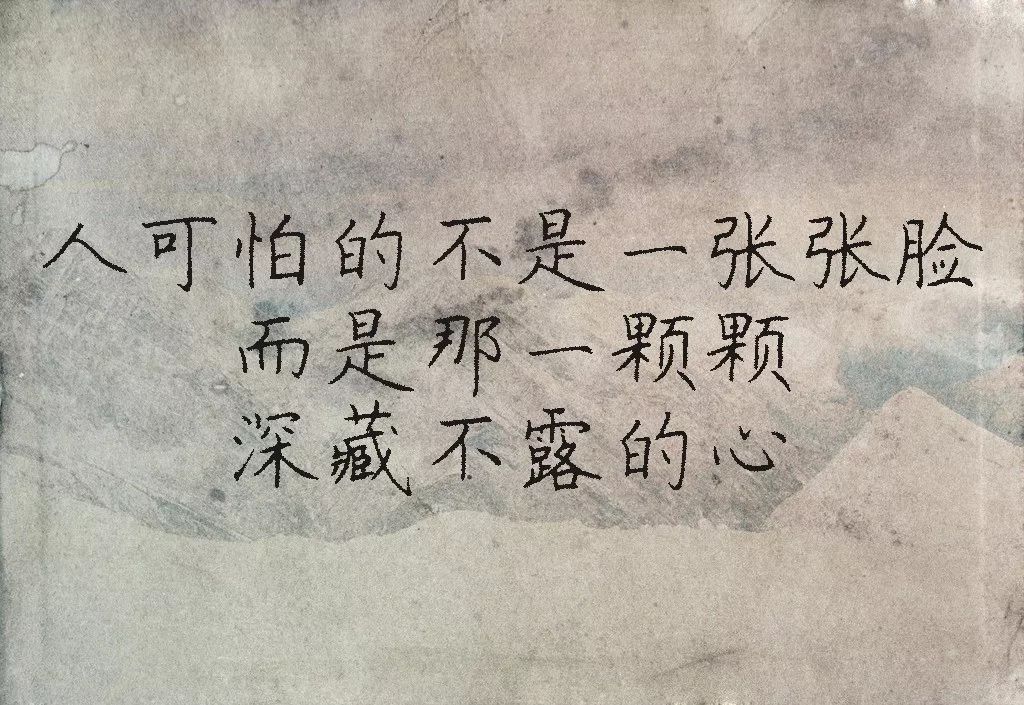 人可怕的不是一张张脸
而是那一颗颗
深藏不露的心